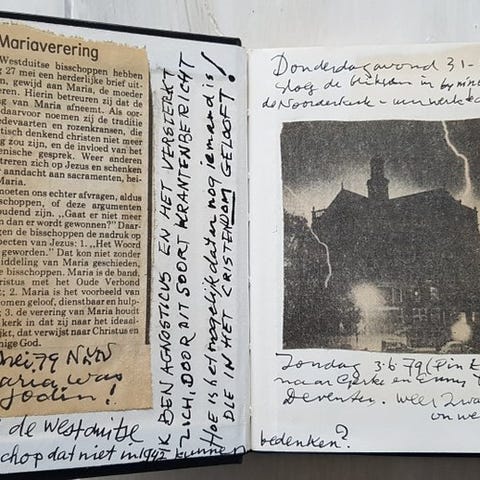 Mariaverering
Westduitse bisschoppen hebben
27 mei een herderlijke brief uit-
en, gewijd aan Maria, de moeder
s. Hierin betreuren zij dat de
ng van Maria afneemt. Als oor-
daarvoor noemen zij de traditie
edevaarten en rozenkransen, die
tisch denkend christen niet meer
ng zou zijn, en de invloed van het
enische gesprek. Weer anderen
treren zich op Jezus en schenken
aandacht aan sacramenten, hei-
Maria.
moeten ons echter afvragen, aldus
hoppen, of deze argumenten
oudend zijn. „Gaat er niet meer
n dan er wordt gewonnen?” Daar-
gen de bisschoppen de nadruk op
pecten van Jezus: 1. „Het Woord
geworden.” Dat kon niet zonder
iddeling van Maria geschieden,
e bisschoppen. Maria is de band,
hristus met het Oude Verbond
t; 2. Maria is het voorbeeld van
omen geloof, dienstbaar en hulp-
; 3. de verering van Maria houdt
kerk in dat zij naar het ideaal-
ijkt, dat verwijst naar Christus en
nige God.
mei 79 NRC
Maria was
Jodin!
de Westduitse
schop dat niet in 1942 kunnen
K BEN AGNOSTICUS EN HET VERSTERKT
ZICH, DOOR DIT SOORT KRANTENBERICHT
Hoe is het mogelijk dat er nog iemand is
DIE IN HET CRISTENDOM GELOOFT!
Donderdagavond 31-
sloeg de bliksem in
de Noorderkerk - uurwerk
Zondag 3.6.79
naar en
Deventer. weer
onwe
bedenken?